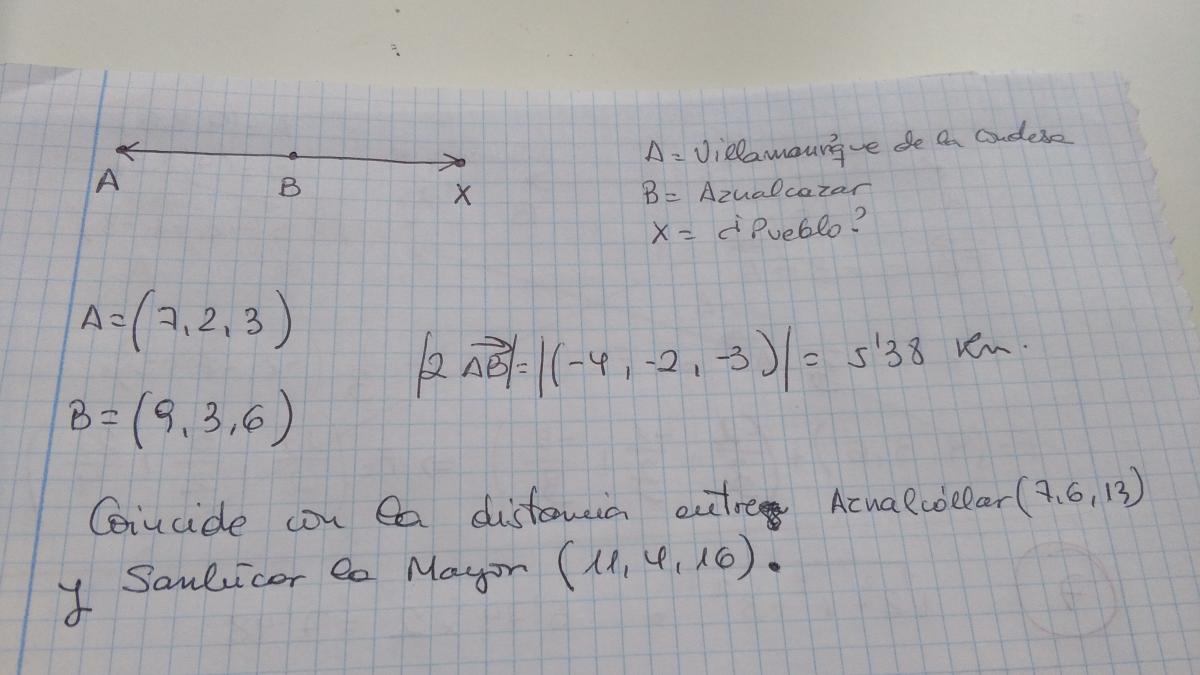 A B X
A = Villamanrique de la Condesa
B = Aznalcazar
X = ¿Pueblo?
A = (7, 2, 3)
|2 AB| = |(-4, -2, -3)| = 5'38 km.
B = (9, 3, 6)
Coincide con la distancia entre Aznalcóllar (7, 6, 13)
y Sanlúcar la Mayor (11, 4, 16).